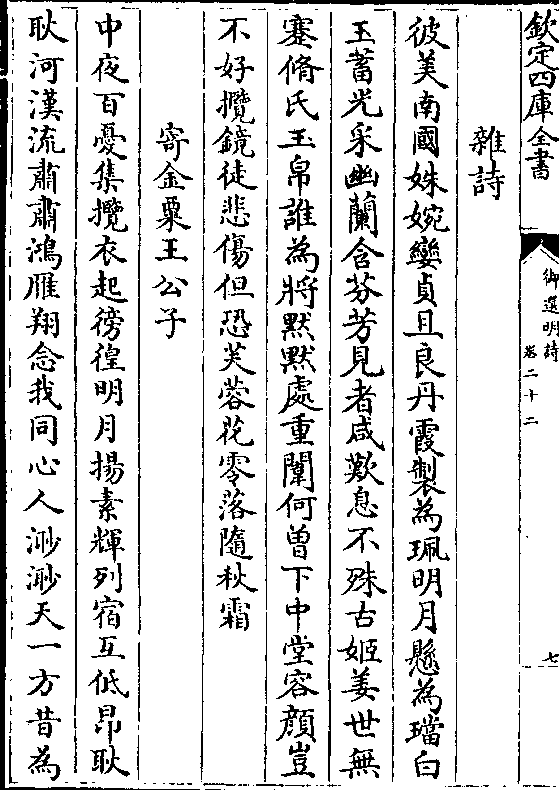 欽定四庫全書
御選明詩
卷二十二
七
雜詩
彼美南國姝婉孌貞且良丹霞製為珮明月懸為璫白
玉蓄光采幽蘭含芬芳見者咸歎息不殊古姬姜世無
蹇脩氏玉帛誰為將黙黙處重闈何曾下中堂容顔豈
不好攬鏡徒悲傷但恐芙蓉花零落隨秋霜
寄金粟王公子
中夜百憂集攬衣起徬徨明月揚素輝列宿互低昂耿
耿河漢流肅肅鴻雁翔念我同心人渺渺天一方昔為